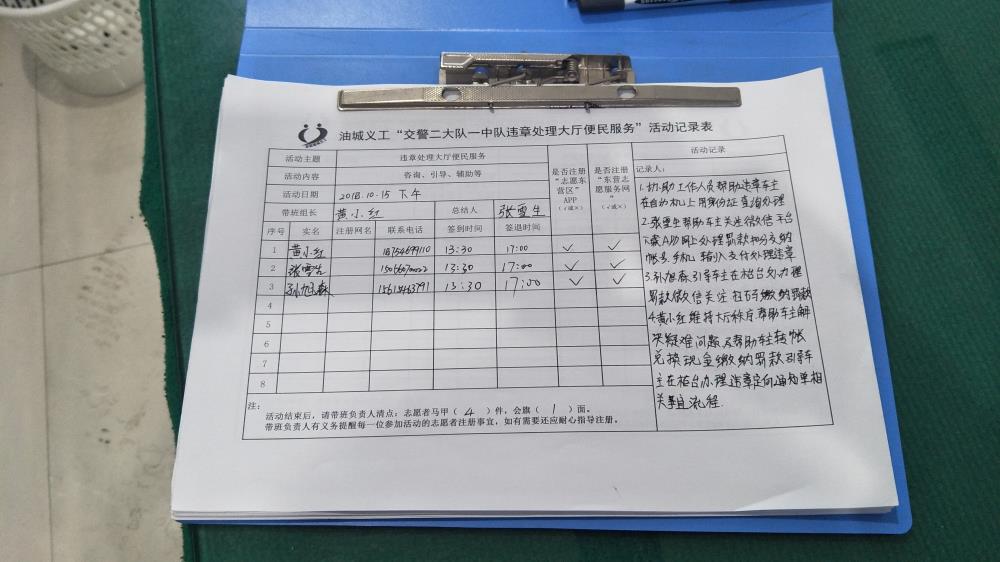 油城义工“交警二大队一中队违章处理大厅便民服务”活动记录表
活动主题 违章处理大厅便民服务
活动内容 咨询、引导、辅助等
活动日期 2018.10.15 下午
带班组长 黄小红 总结人 张雪生
是否注册“志愿东营区”APP（√或×）
是否注册“东营志愿服务网”（√或×）
序号 实名 注册网名 联系电话 签到时间 签退时间
1 黄小红 18754699110 13:30 17:00 √ √
2 张雪生 13:30 17:00 √ √
3 孙旭森 13:30 17:00 √ √
4
5
6
7
8
注：
活动结束后，请带班负责人清点：志愿者马甲（ 4 ）件，会旗（ 1 ）面。
带班负责人有义务提醒每一位参加活动的志愿者注册事宜，如有需要还应耐心指导注册。
活动记录
记录人：
1.协助工作人员帮助违章车主
在自动机上用身份证查询处理
2.张雪生帮助车主关注微信平台
下载APP网上处理罚款扣分交纳
帐号.手机 输入支付处理违章
3.孙旭森引导车主在柜台处办理
罚款微信关注 扫码缴纳罚款
4.黄小红维持大厅秩序.帮助车主解
决疑难问题及帮助车主转帐
兑换现金缴纳罚款引导车
主在柜台办理违章定向 单相
关事宜流程.